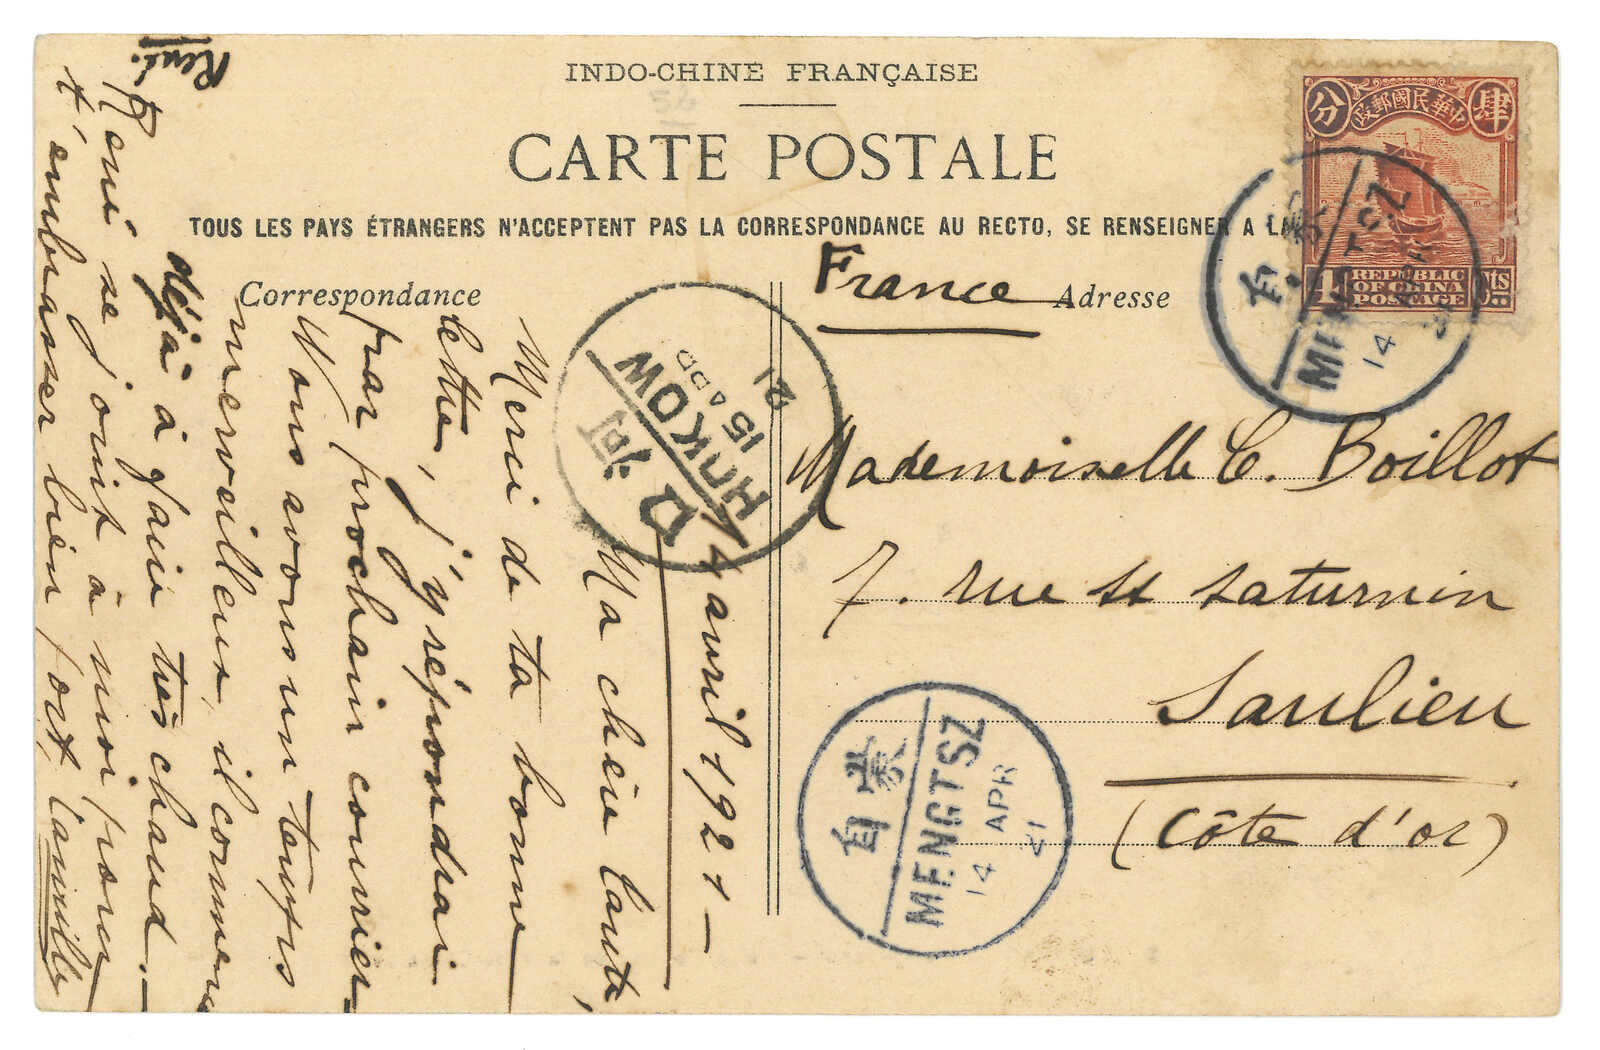 INDO-CHINE FRANÇAISE
CARTE POSTALE
TOUS LES PAYS ÉTRANGERS N'ACCEPTENT PAS LA CORRESPONDANCE AU RECTO, SE RENSEIGNER A LA
Correspondance
Adresse
France
Mademoiselle C. Boillot
7. rue St Saturnin
Saulieu
(Côte d'or)
14 avril 1921 -
Ma chère tante,
Merci de ta bonne
lettre, j'y répondrai
par prochain courrier
Nous avons un temps
merveilleux, il commence
déjà à faire très chaud. -
René se joint à moi pour
t'embrasser bien fort,
Camille
René.
中華民國郵政
肆
分
4
REPUBLIC
OF CHINA
POSTAGE
cts
蒙自
MENGTSZ
14 APR
21
口河
HOKOW
15 APR
21
蒙自
MENGTSZ
14 APR
21